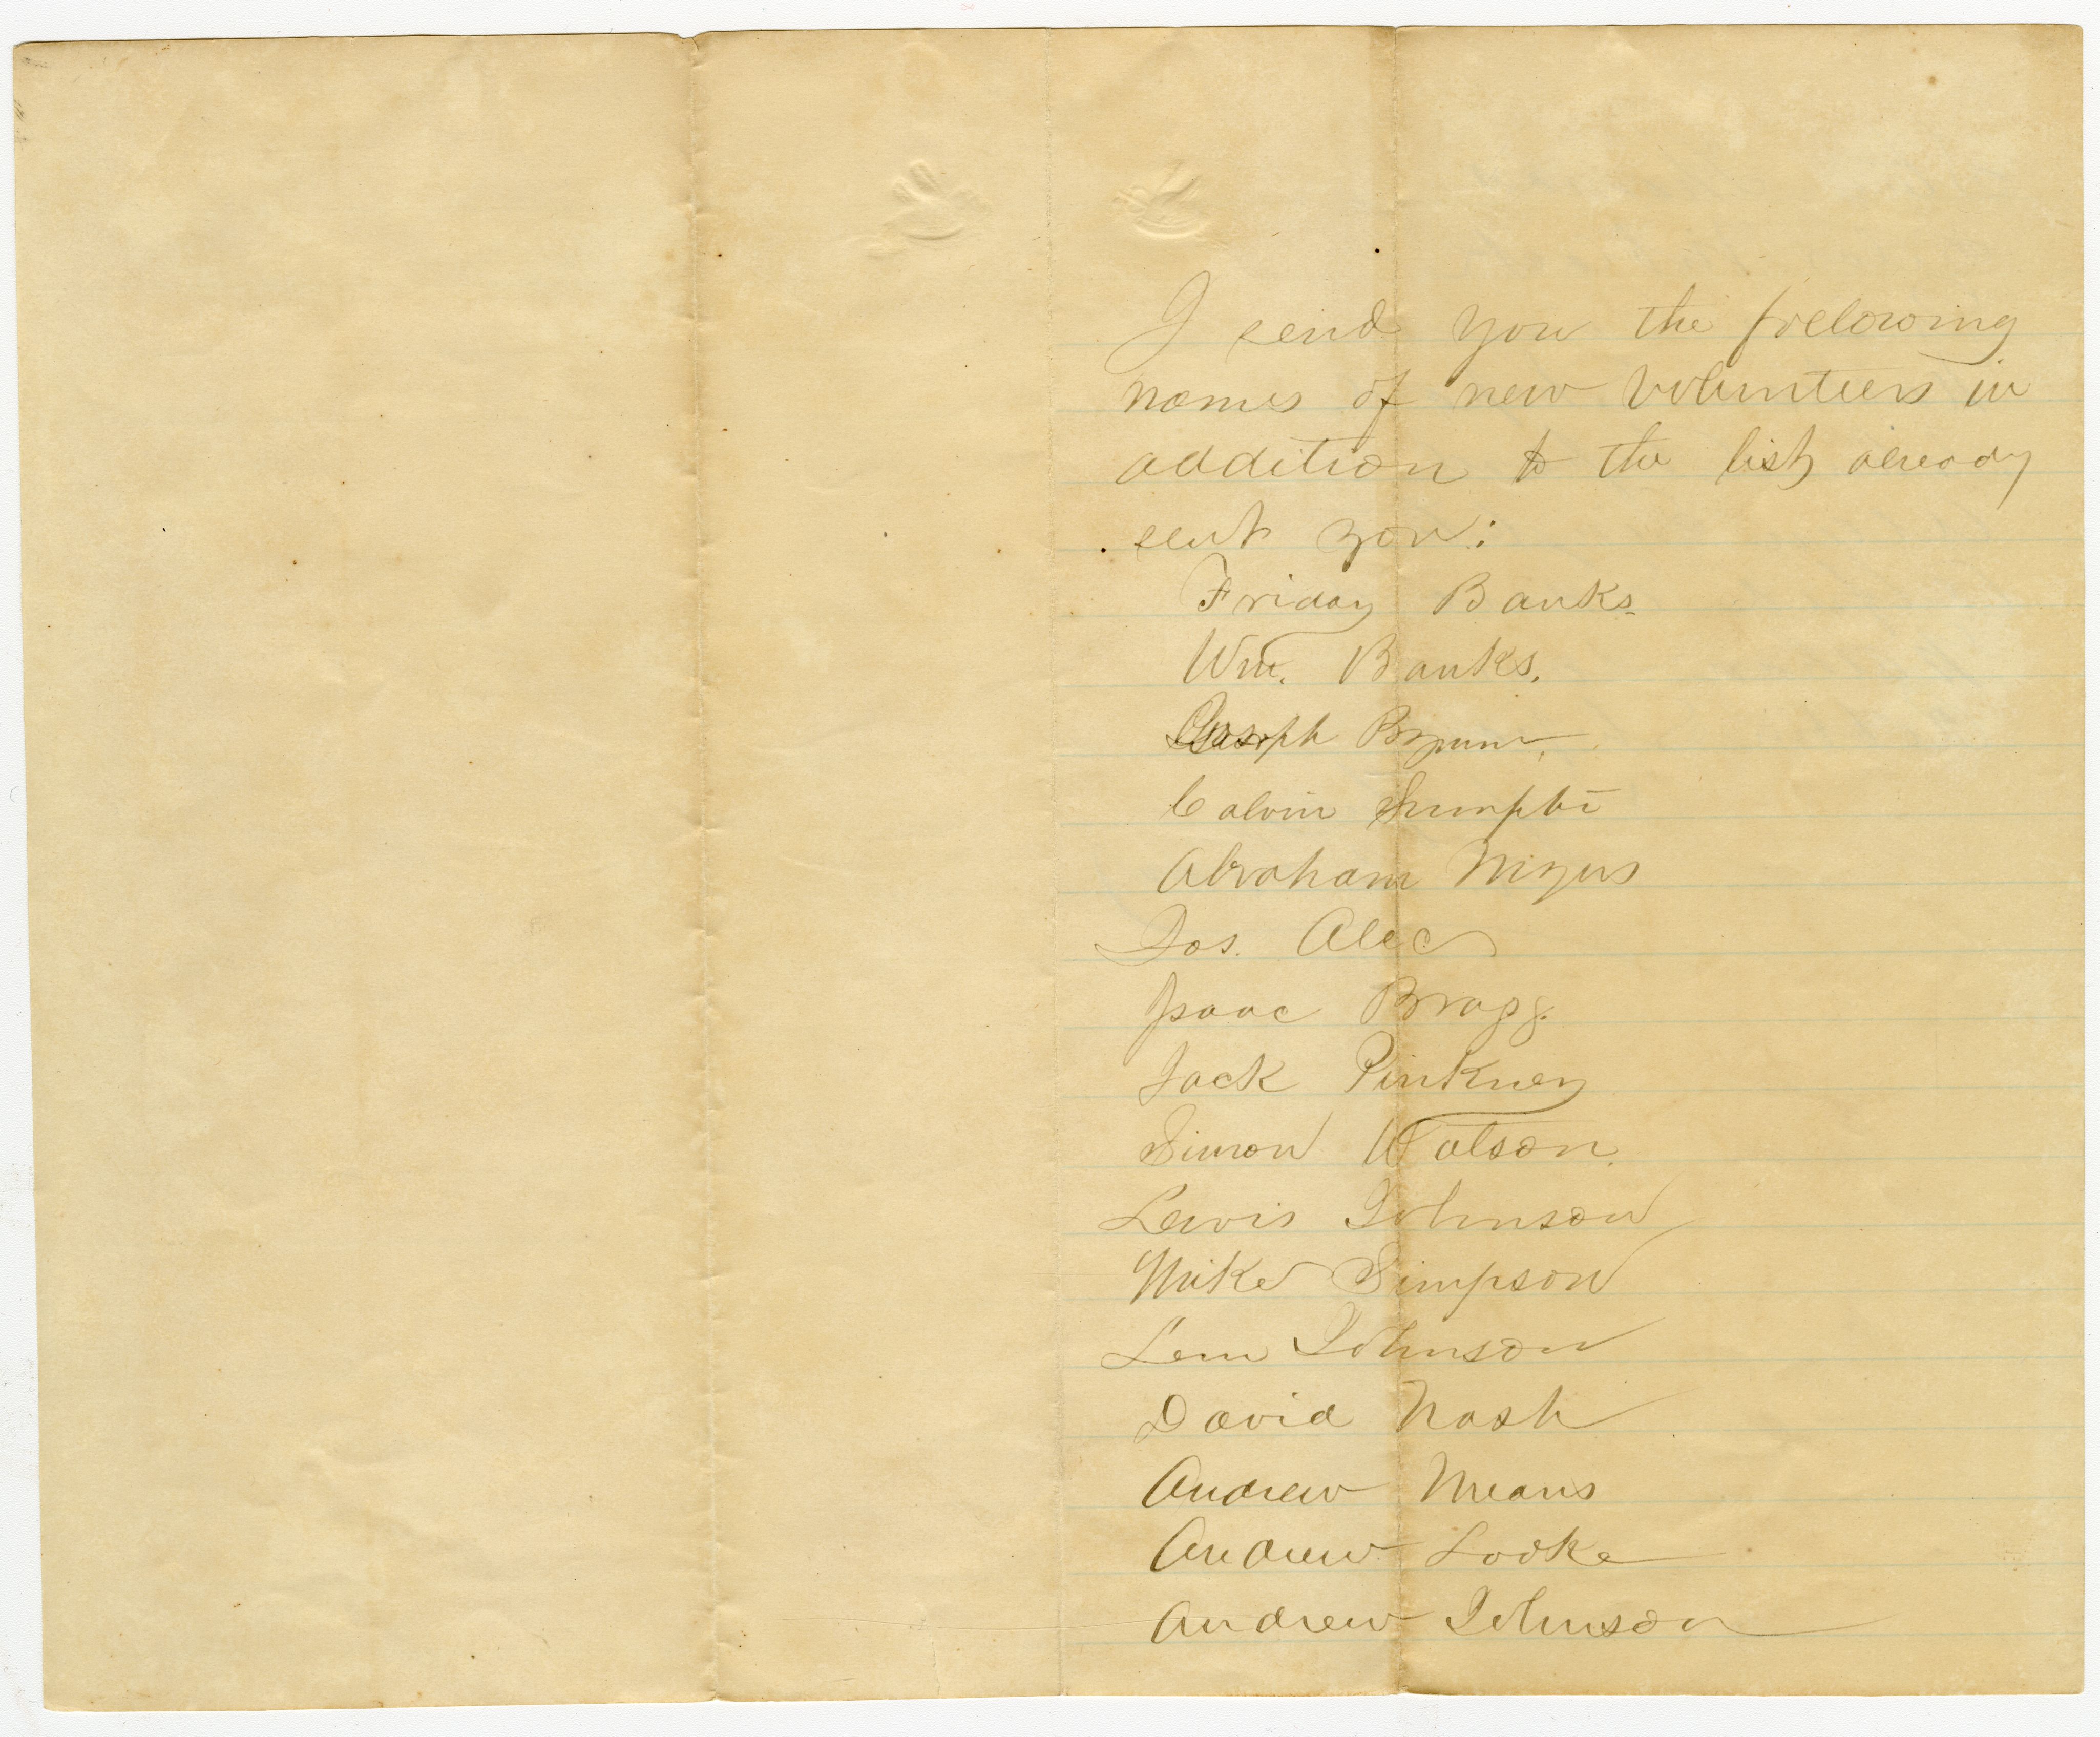 I send you the following
names of new volunteers in
addition to the list already
sent you:
Friday Banks.
Wm. Banks.
Joseph Bynum.
Calvin Sumpter
Abraham Mizus
Jos. Alec
Isaac Bragg.
Jack Pinkney
Simon Watson.
Lewis Johnson
Mike Simpson
Lem Johnson
David Nash
Andrew Means
Andrew Looke
Andrew Johnson